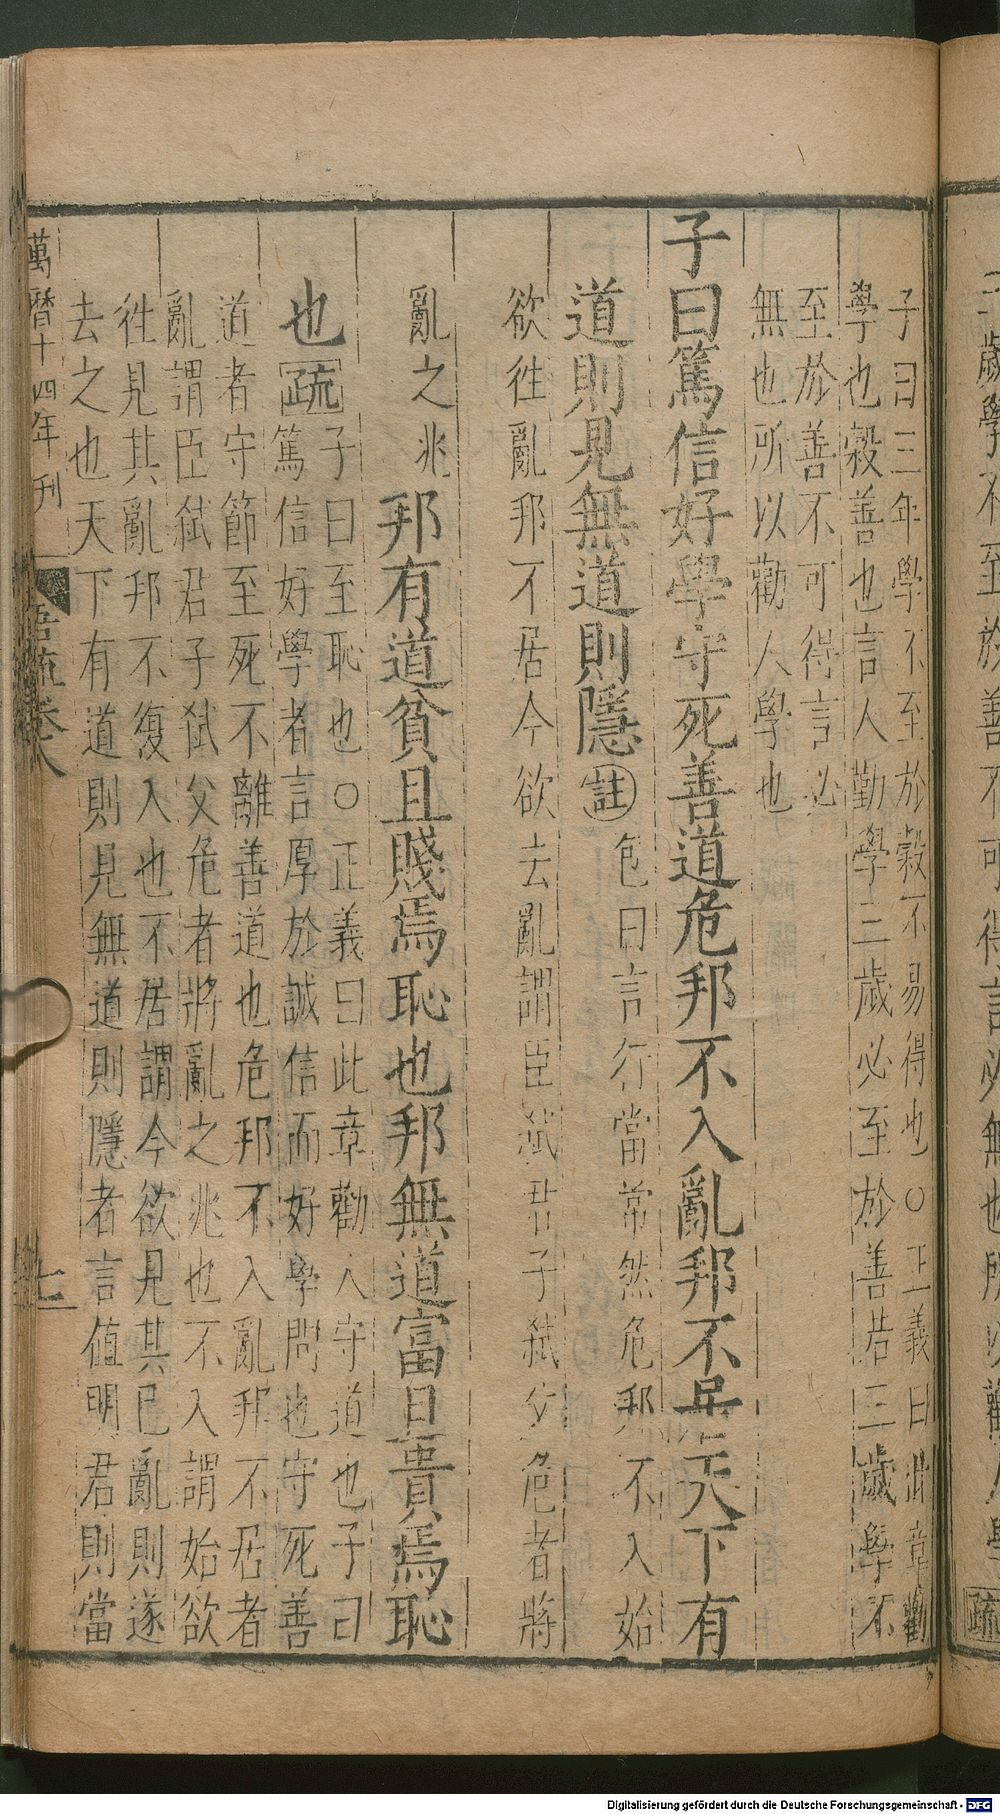 子曰三年學不至於穀不易得也○正義曰此章勸
學也穀善也言人勤學三歲必至於善若三歲學不
至於善不可得言必
無也所以勸人學也
子曰篤信好學守死善道危邦不入亂邦不居天下有
道則見無道則隱註包曰言行當常然危邦不入始
欲徃亂邦不居今欲去亂謂臣弑君子弑父危者將
亂之兆
邦有道貧且賤焉恥也邦無道富且貴焉恥
也疏子曰至恥也○正義曰此章勸人守道也子曰
篤信好學者言厚於誠信而好學問也守死善
道者守節至死不離善道也危邦不入亂邦不居者
亂謂臣弑君子弑父危者將亂之兆也不入謂始欲
徃見其亂邦不復入也不居謂今欲見其已亂則遂
去之也天下有道則見無道則隱者言值明君則當
萬曆十四年刊
語疏卷八
七
歲學不至於善不可得言必無也所以勸人學
疏
Digitalisierung gefördert durch die Deutsche Forschungsgemeinschaft - DFG